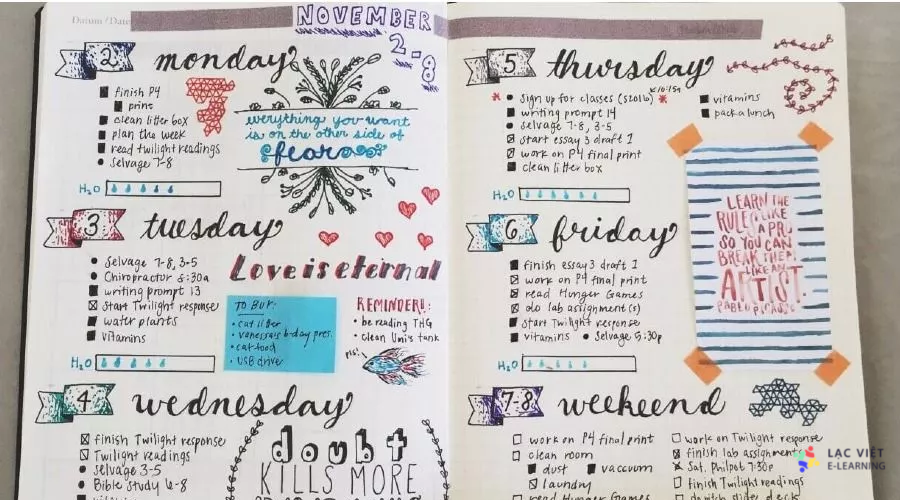 Datum / Date
NOVEMBER
2-8
2 monday
finish P4
print
clean litter box
plan the week
read twilight readings
Selvage 7-8
H₂O
everything you want
is on the other side of
fear
3 tuesday
Selvage 7-8, 3-5
Chiropractor 8:30a
writing prompt 13
start Twilight response
water plants
vitamins
H₂O
Love is eternal
TO BUY:
cat litter
vanessa's b-day pres.
cat food
USB drive
REMINDER!:
be reading THG
clean Umi's tank
pls!
4 wednesday
finish Twilight response
Twilight readings
Selvage 3-5
Bible Study 6-8
doubt
KILLS MORE
5 thursday
sign up for classes
writing prompt 14
selvage 7-8, 3-5
start essay 3 draft 1
work on P4 final print
clean litter box
vitamins
pack a lunch
H₂O
LEARN THE
RULES LIKE
A PRO
SO YOU CAN
BREAK THEM
LIKE AN
ARTIST.
PABLO PICASSO
6 friday
finish essay 3 draft 1
work on P4 final print
read Hunger Games
do lab assignment(s)
start Twilight response
vitamins • Selvage 5:30p
H₂O
7-8 weekend
work on P4 final print
clean room
dust vaccum
laundry
read Hunger Games
work on Twilight response
finish lab assignments
Sat. Philpot 7:30p
finish Twilight readings
LẠC VIỆT
E-LEARNING